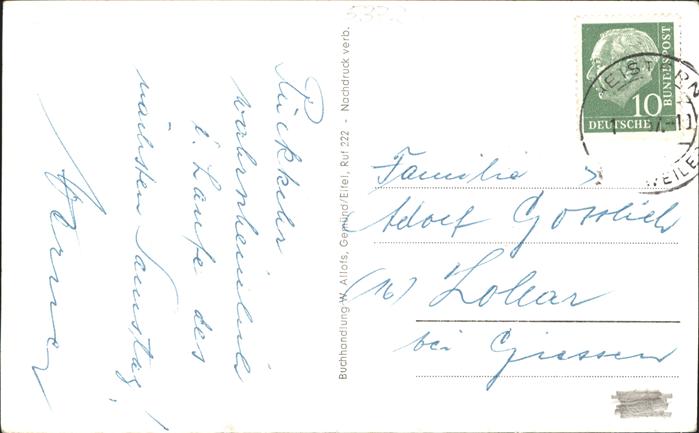 Rückkehr
wahrscheinlich
i. Laufe des
nächsten Samstag!
Werner
Buchhandlung W. Allofs, Gemünd/Eifel, Ruf 222 - Nachdruck verb.
Familie
Adolf Gottlieb
(16) Lollar
bei Giessen
10
DEUTSCHE
BUNDESPOST